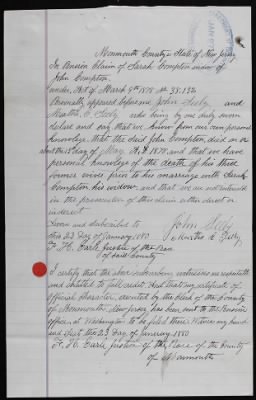 Monmouth County & State of New Jersey
In Pension Claim of Sarah Compton widow of
John Compton.
under Act of March 9th 1878 No 38.132
Personally appeared before me John Seely and
Martha E. Seely who being by me duly sworn
declare and say that we know from our own personal
knowledge that the said John Compton died on or
about the day of 1878, and that we have
personal knowledge of the death of his three
former wives prior to his marriage with Sarah
Compton his widow, and that we are not interested
in the prosecution of this claim either direct or
indirect
Sworn and subscribed to John Seely
this 23 Day of January 1880 Martha E Seely
F. H. Earle Justice of the Peace
of said County
I certify that the above subscribing witnesses are respectable
and entitled to full credit. And that my certificate of
Official Character, executed by the Clerk of the County
of Monmouth, New Jersey has been sent to the Pension
office, at Washington to be filed there. Witness my hand
and Seal the 23 Day of January 1880
F. H. Earle Justice of the Peace of the County
of Monmouth